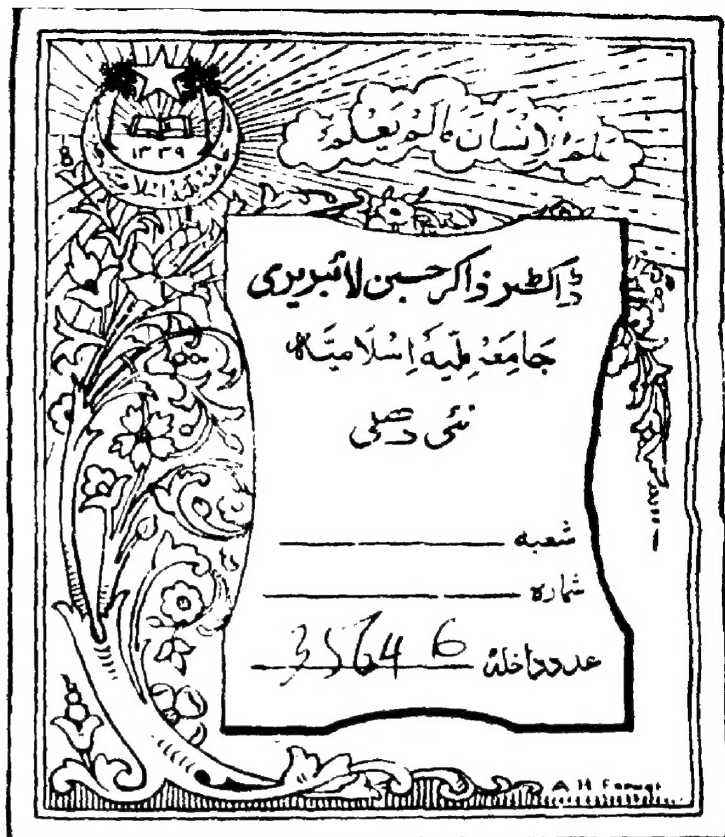 ۱۳۳۹
عَلَّمَ الْاِنْسَانَ مَالَمْ یَعْلَمْ
ڈاکٹر ذاکر حسین لائبریری
جَامِعَہ مِلّیَہ اِسْلَامِیَّہ
نئی دہلی
شعبہ
شمارہ
عدد داخلہ 35646